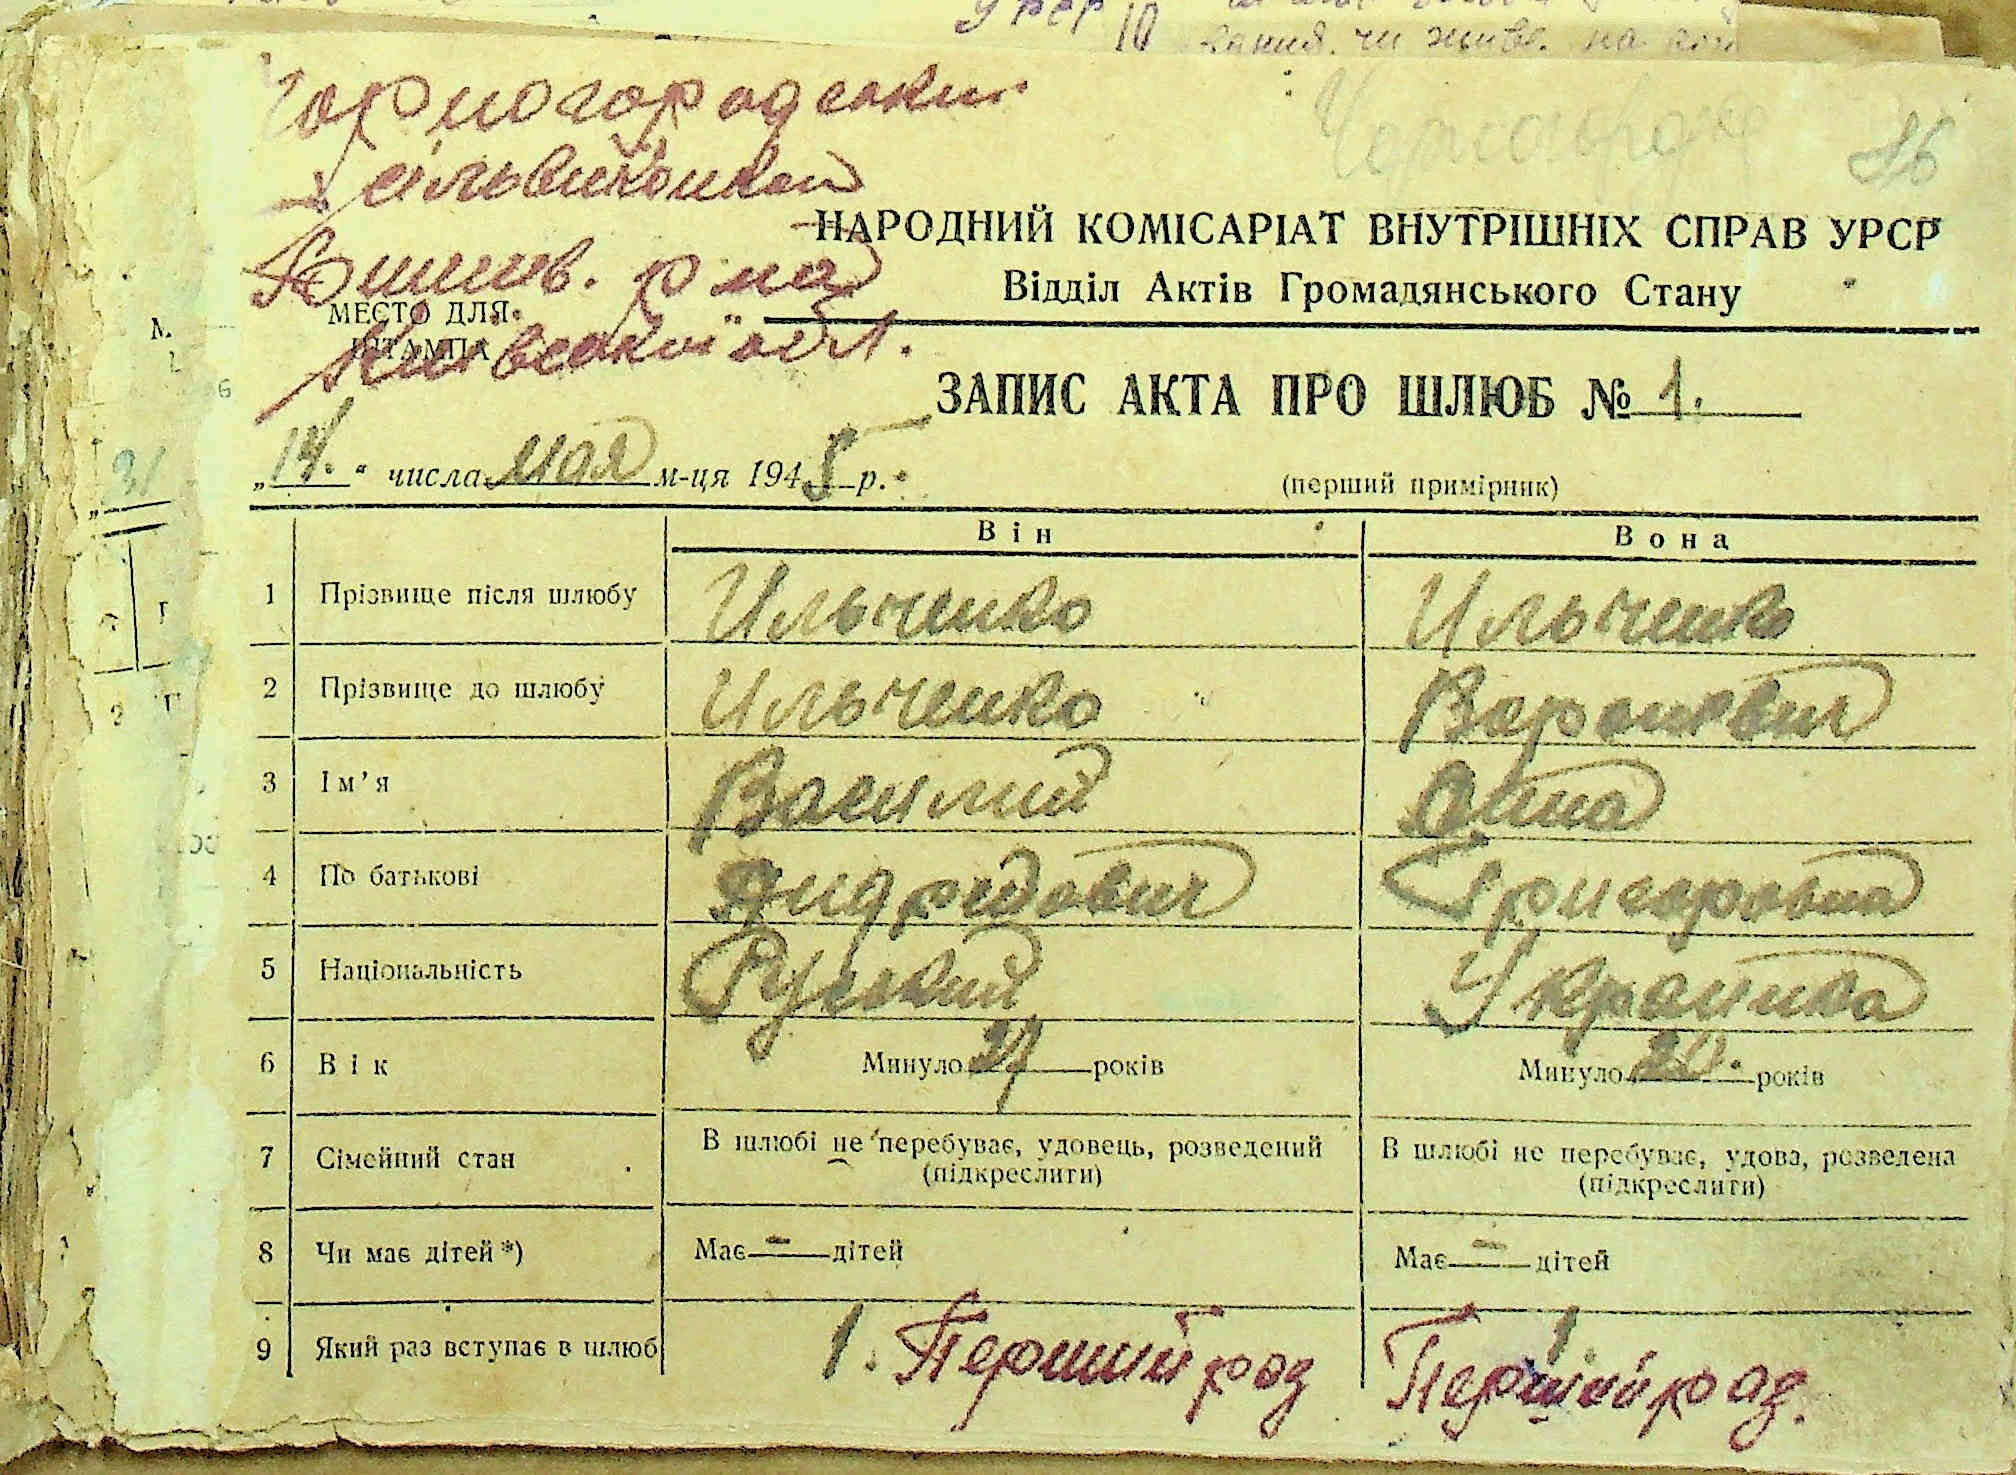 УРСР 10
чи живе. на
Чорногородський
сільвиконком
Чорногород 86
НАРОДНИЙ КОМІСАРІАТ ВНУТРІШНІХ СПРАВ УРСР
Відділ Актів Громадянського Стану
р на
МЕСТО ДЛЯ
ШТАМПА
Київської обл.
ЗАПИС АКТА ПРО ШЛЮБ № 1.
„14.“ числа мая м-ця 1945 р.
(перший примірник)
31
Він Вона
1 Прізвище після шлюбу Ильченко Ильченко
2 Прізвище до шлюбу Ильченко
3 Ім'я Василий
4 По батькові Андреевич Григоровна
5 Національність Руський Украинка
6 Вік Минуло 27 років Минуло 20. років
7 Сімейний стан В шлюбі не перебуває, удовець, розведений В шлюбі не перебуває, удова, розведена
(підкреслити) (підкреслити)
8 Чи має дітей *) Має — дітей Має — дітей
9 Який раз вступає в шлюб 1. Перший раз 1. Перший раз.